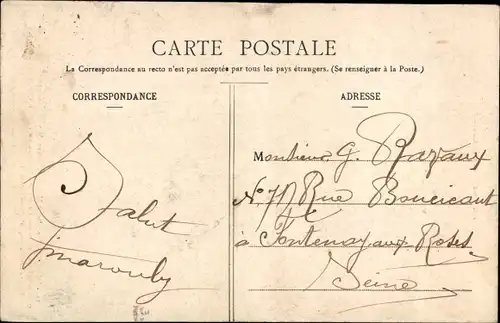 CARTE POSTALE
La Correspondance au recto n'est pas acceptée par tous les pays étrangers. (Se renseigner à la Poste.)
CORRESPONDANCE
ADRESSE
Salut
Monsieur G. Razaux
Rue Boucicaut
à Fontenay aux Roses
Seine